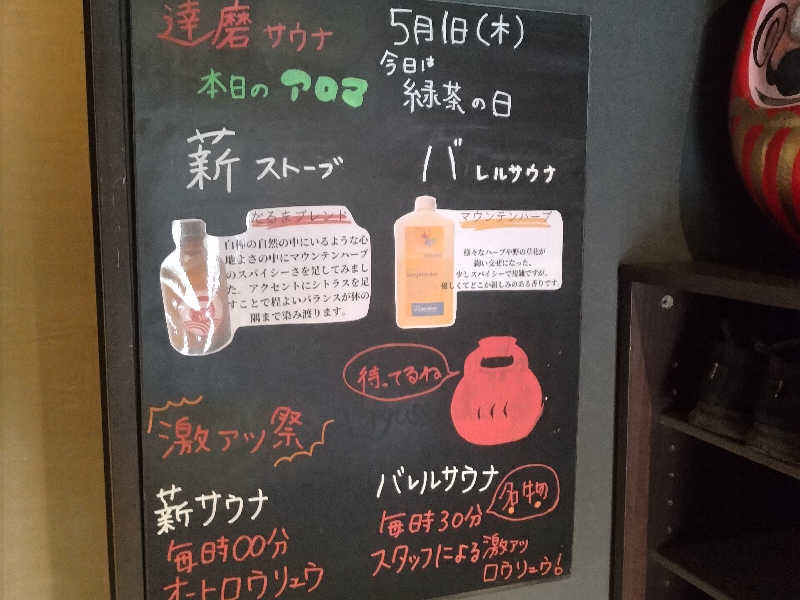 達磨サウナ
5月1日(木)
本日のアロマ
今日は
緑茶の日
薪ストーブ
バレルサウナ
だるまブレンド
白樺の自然の中にいるような心
地よさの中にマウンテンハーブ
のスパイシーさを足してみまし
た。アクセントにシトラスを足
すことで程よいバランスが体の
隅まで染み渡ります。
マウンテンハーブ
様々なハーブや野の草花が
綯い交ぜになった、
少しスパイシーで複雑ですが、
優しくてどこか親しみのある香りです。
待ってるね
激アツ祭
薪サウナ
毎時00分
オートロウリュウ
バレルサウナ
名物
毎時30分
スタッフによる激アツ
ロウリュウ!